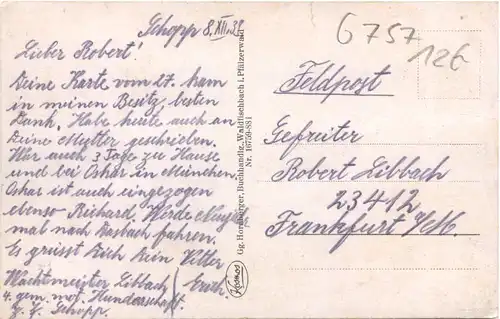 Schopp 8.XII.39
Lieber Robert!
Deine Karte vom 27. kam
in meinen Besitz, besten
Dank. Habe heute auch an
Deine Mutter geschrieben.
War auch 3 Tage zu Hause
und bei Oskar in München.
Oskar ist auch eingezogen
ebenso Richard. Werde
mal nach fahren.
Es grüsst Dich Dein Vetter
Wachtmeister Libbach Erich.
4. gem. mot. Hundertschaft
z. Z. Schopp.
Gg. Hornberger, Buchhandlg., Waldfischbach i. Pfälzerwald
Nr. 16759-881
Kosmos
6757
126
Feldpost
Gefreiter
Robert Libbach
23412
Frankfurt a/M.